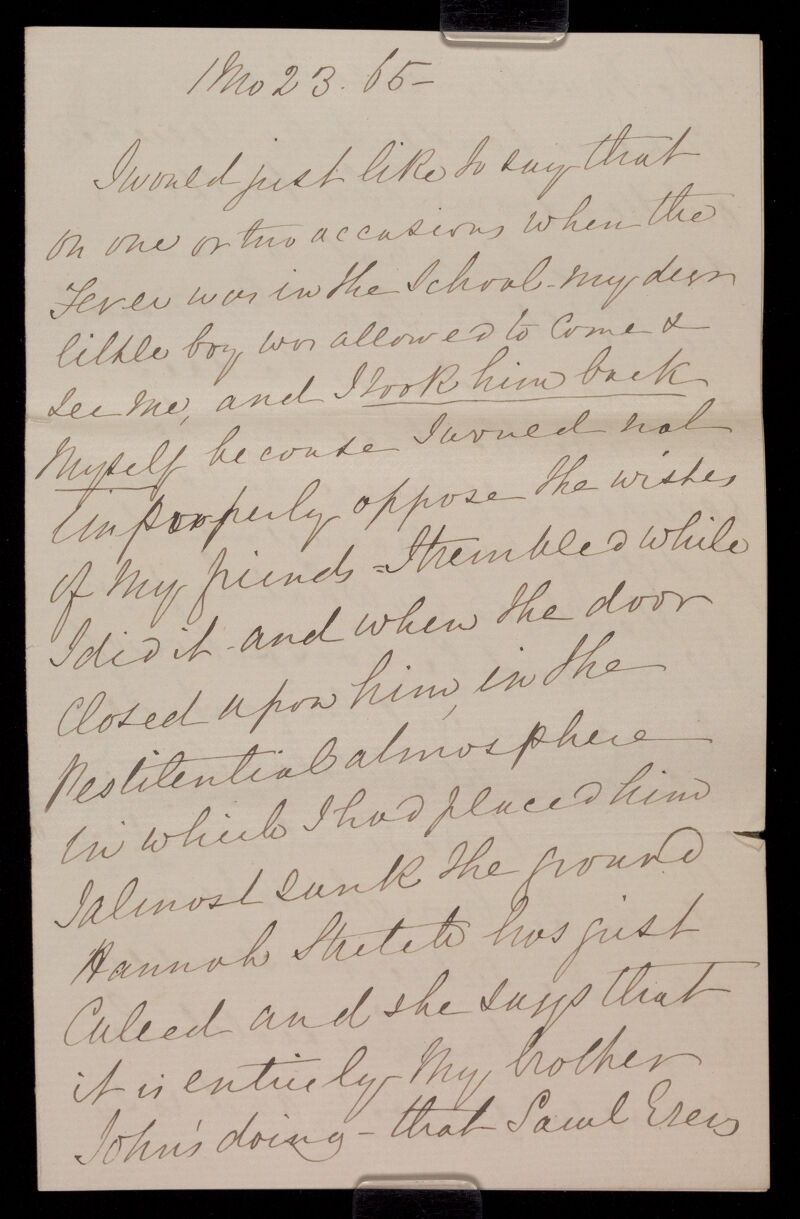 1 Mo 23. 65 –
I would just like to say that
on one or two occasions when the
Fever was in the School – my dear
little boy was allowed to come &
see me, and I took him back
myself because I would not
improperly oppose the wishes
of my friends = I trembled while
I did it – and when the door
closed upon him, in the
Pestilential atmosphere
in which I had placed him
I almost sunk the ground
Hannah Stretch has just
called and she says that
it is entirely my brother
John's doing – that Saml